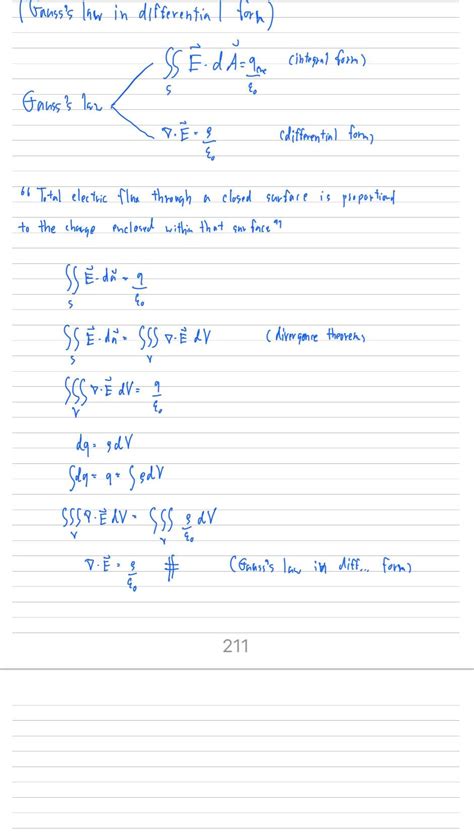 (Gauss's law in differential form)
∬_S E⃗ · dA⃗ = q_enc/ε₀ (integral form)
Gauss's law
∇·E⃗ = ρ/ε₀ (differential form)
“Total electric flux through a closed surface is proportional
to the charge enclosed within that surface”
∬_S E⃗ · da⃗ = q/ε₀
∬_S E⃗ · da⃗ = ∭_V ∇·E⃗ dV (divergence theorem)
∭_V ∇·E⃗ dV = q/ε₀
dq = ρdV
∫dq = q = ∫ρdV
∭_V ∇·E⃗ dV = ∭_V ρ/ε₀ dV
∇·E⃗ = ρ/ε₀ # (Gauss's law in diff... form)
211